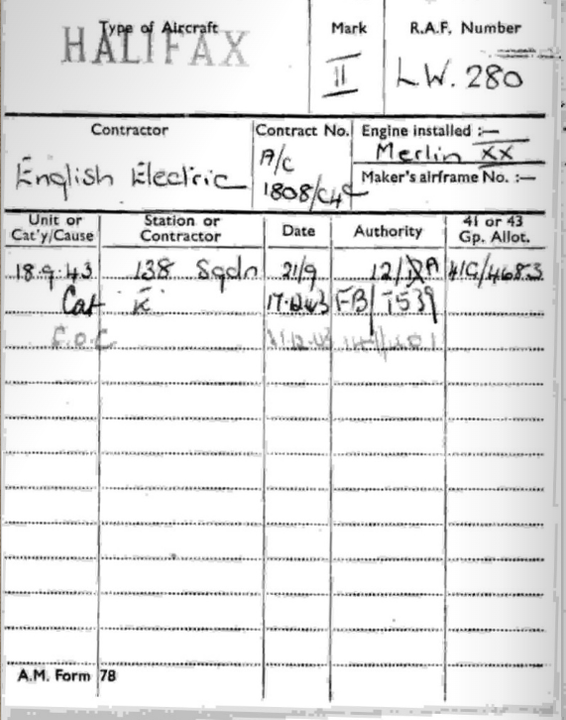 Type of Aircraft Mark R.A.F. Number
HALIFAX II LW. 280
Contractor Contract No. Engine installed :—
English Electric A/C Merlin XX
1808/C4c Maker's airframe No. :—
Unit or Station or Date Authority 41 or 43
Cat'y/Cause Contractor Gp. Allot.
18.9.43 138 Sqdn 21/9 41G/4683
Cat E 17.12.43 FB/T539
E.O.C
A.M. Form 78